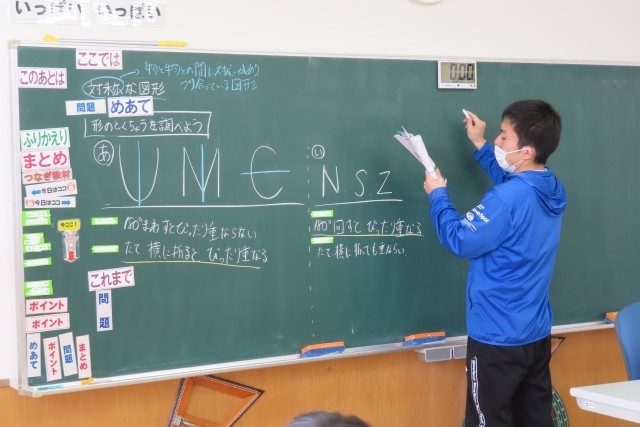 いっぱい いっぱい
ここでは
このあとは
対称な図形
問題 めあて
形のとくちょうを調べよう
0:00
ふりかえり
まとめ
つなぎ教材
今日はココ
今日はココ
あ U M E
い N S Z
今ここ!
180°まわすとぴったり重ならない
たて、横に折ると ぴったり重なる
180°回すと ぴったり重なる
たて、横に折っても重ならない
これまで
問題
ポイント
ポイント
めあて
ポイント
問題
まとめ